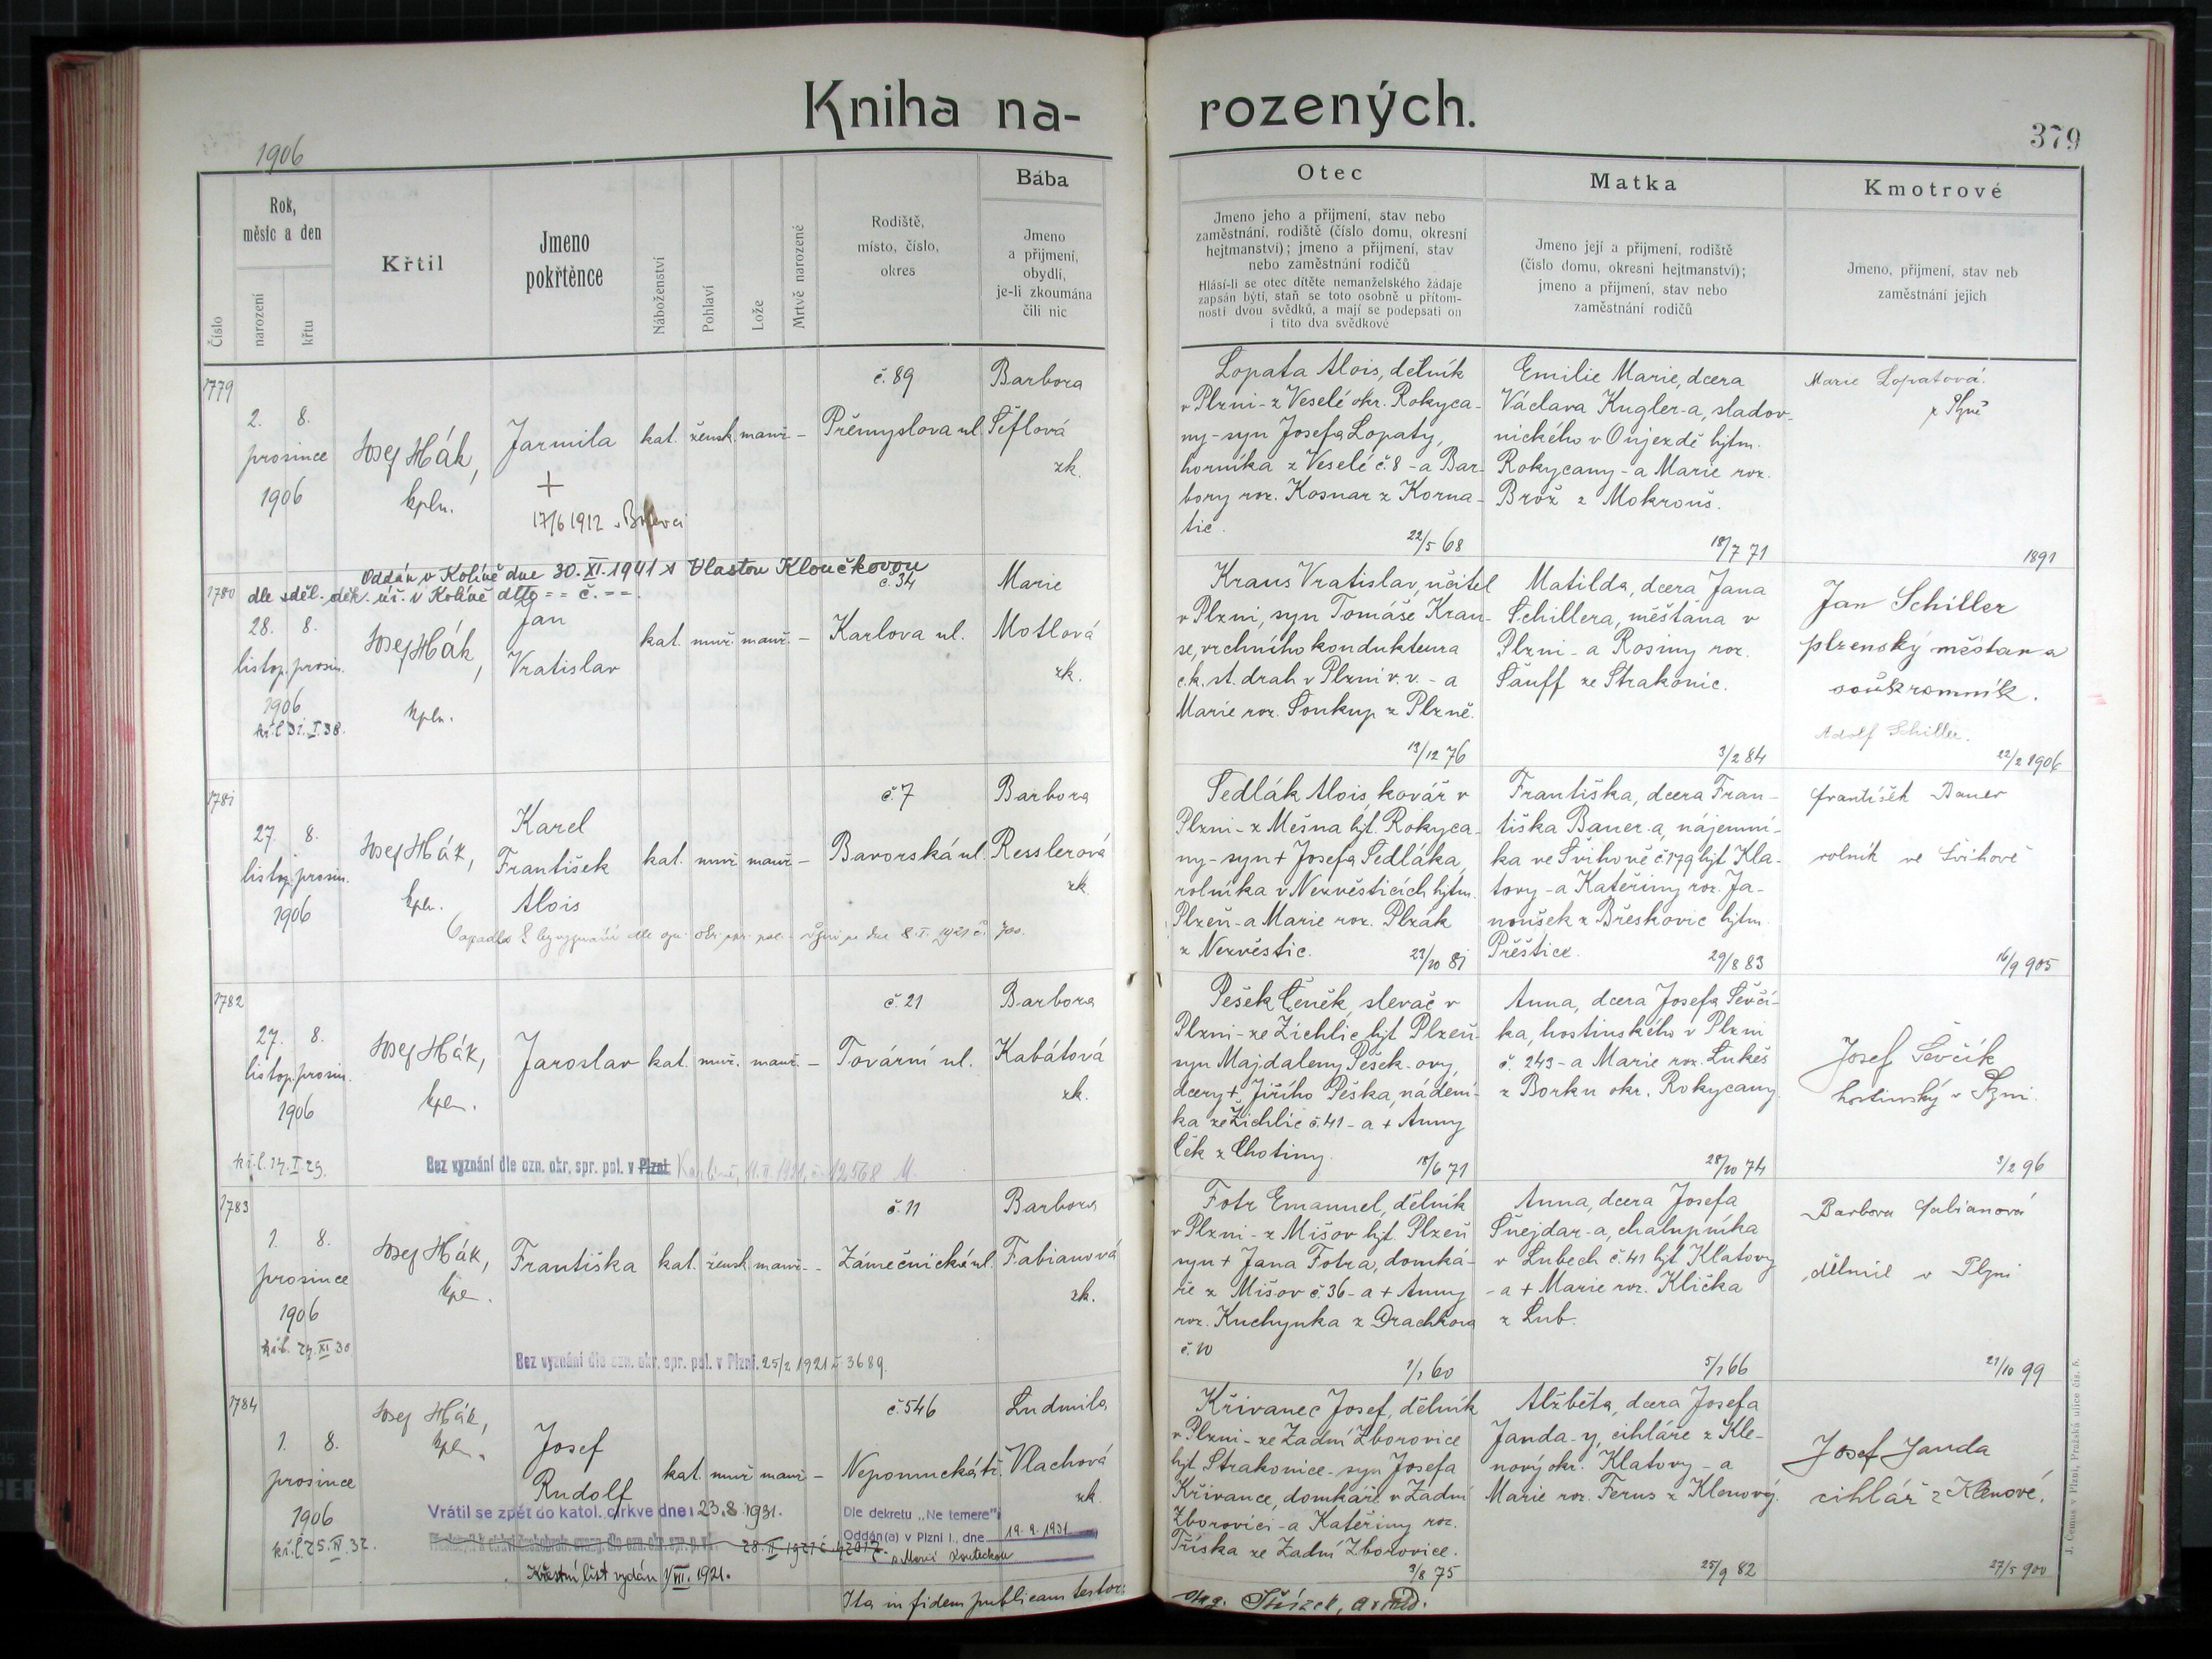 Kniha na-
rozených.
379
1906
Číslo
Rok,
měsíc a den
narození
křtu
Křtil
Jmeno
pokřtěnce
Náboženství
Pohlaví
Lože
Mrtvě narozené
Rodiště,
místo, číslo,
okres
Bába
Jmeno
a přijmení,
obydlí,
je-li zkoumána
čili nic
Otec
Jmeno jeho a přijmení, stav nebo
zaměstnání, rodiště (číslo domu, okresní
hejtmanství); jmeno a přijmení, stav
nebo zaměstnání rodičů
Hlásí-li se otec dítěte nemanželského žádaje
zapsán býti, staň se toto osobně u přítom-
nosti dvou svědků, a mají se podepsati on
i tito dva svědkové
Matka
Jmeno její a přijmení, rodiště
(číslo domu, okresní hejtmanství);
jmeno a přijmení, stav nebo
zaměstnání rodičů
Kmotrové
Jmeno, přijmení, stav neb
zaměstnání jejich
1779
2. 8.
prosince
1906
Josef Hák,
kpln.
Jarmila
+
17/6 1912
kat. žensk. manž. –
č. 89
Přemyslova ul.
Barbora
Šiflová
zk.
Lopata Alois, dělník
v Plzni - z Veselé okr. Rokyca-
ny - syn Josefa Lopaty,
horníka z Veselé č. 8 - a Bar-
bory roz. Kosnar z Korna-
tic.
22/5 68
Emilie Marie, dcera
Václava Kugler-a, sladov-
nického v Oujezdě hjtm.
Rokycany - a Marie roz.
Brož z Mokrouš.
18/7 71
Marie Lopatová.
z Plzně
1891
Oddán v Kolíně dne 30. XI. 1941 s Vlastou Kloučkovou
dle sděl. děk. úř. v Kolíně dtto == č. ==.
1780
28. 8.
listop. prosin.
1906
kř. l. 31. I. 38.
Josef Hák,
kpln.
Jan
Vratislav
kat. muž. manž. –
č. 34
Karlova ul.
Marie
Motlová
zk.
Kraus Vratislav, učitel
v Plzni, syn Tomáše Krau-
se, vrchního kondukteura
c.k. st. drah v Plzni v. v. - a
Marie roz. Soukup z Plzně.
13/12 76
Matilda, dcera Jana
Schillera, měšťana v
Plzni - a Rosiny roz.
Šauff ze Strakonic.
3/2 84
Jan Schiller
plzenský měšťan a
soukromník.
Adolf Schiller.
22/2 1906
1781
27. 8.
listop. prosin.
1906
Josef Hák,
kpln.
Karel
František
Alois
kat. muž. manž. –
č. 7
Bavorská ul.
Barbora
Resslerová
zk.
Sedlák Alois, kovář v
Plzni - z Mešna hjt. Rokyca-
ny - syn + Josefa Sedláka,
rolníka v Nezvěsticích hjtm.
Plzeň - a Marie roz. Plzák
z Nezvěstic.
23/10 81
Františka, dcera Fran-
tiška Bauer-a, nájemní-
ka ve Švihově č. 179 hjt. Kla-
tovy - a Kateřiny roz. Ja-
noušek z Břeskovic hjtm.
Přeštice.
29/8 83
František Bauer
rolník ve Švihově
16/9 905
1782
27. 8.
listop. prosin.
1906
kř. l. 14. I. 29.
Josef Hák,
kpln.
Jaroslav
kat. muž. manž. –
č. 21
Tovární ul.
Barbora
Kabátová
zk.
Bez vyznání dle ozn. okr. spr. pol. v Plzni Karlíně, 11. II. 1921, č. 12568
Pešek Čeněk, slevač v
Plzni - ze Žichlic hjt. Plzeň -
syn Majdaleny Pešek-ovy,
dcery + Jiřího Peška, nádení-
ka ze Žichlic č. 41 - a + Anny
Cek z Chotiny.
18/6 71
Anna, dcera Josefa Ševčí-
ka, hostinského v Plzni
č. 243 - a Marie roz. Lukeš
z Borku okr. Rokycany
28/10 74
Josef Ševčík
hostinský v Plzni.
3/2 96
1783
1. 8.
prosince
1906
kř. l. 24. XI. 30
Josef Hák,
kpln.
Františka
kat. žensk. manž. –
č. 11
Zámečnická ul.
Barbora
Fabianová
zk.
Bez vyznání dle ozn. okr. spr. pol. v Plzni. 25/2 1921 č. 3689.
Fotr Emanuel, dělník
v Plzni - z Mišov hjt. Plzeň
syn + Jana Fotra, domká-
ře z Mišov č. 36 - a + Anny
roz. Kuchynka z Drachkova
č. 10
1/1 60
Anna, dcera Josefa
Šnejdar-a, chalupníka
v Lubech č. 41 hjt. Klatovy
- a + Marie roz. Klička
z Lub.
5/1 66
Barbora Fabianová
dělník v Plzni
21/10 99
1784
1. 8.
prosince
1906
kř. l. 25. IV. 32.
Josef Hák,
kpln.
Josef
Rudolf
kat. muž. manž. –
č. 546
Nepomucká tř.
Ludmila
Vlachová
zk.
Vrátil se zpět do katol. církve dne 23. 8. 1931.
28. II. 1921
Křestní list vydán 1/VII. 1921.
Dle dekretu „Ne temere"
Oddán(a) v Plzni I., dne 19. 9. 1931
s Marií
Křivanec Josef, dělník
v Plzni - ze Zadní Zborovice
hjt. Strakonice - syn Josefa
Křivance, domkáře v Zadní
Zborovici - a Kateřiny roz.
Tříska ze Zadní Zborovice.
3/8 75
Alžběta, dcera Josefa
Janda-y, cihláře z Kle-
nový okr. Klatovy - a
Marie roz. Ferus z Klenový.
25/9 82
Josef Janda
cihlář z Klenové.
27/5 900
Ita in fidem publicam testor:
J. Čenus v Plzni, Pražská ulice čís. 5.